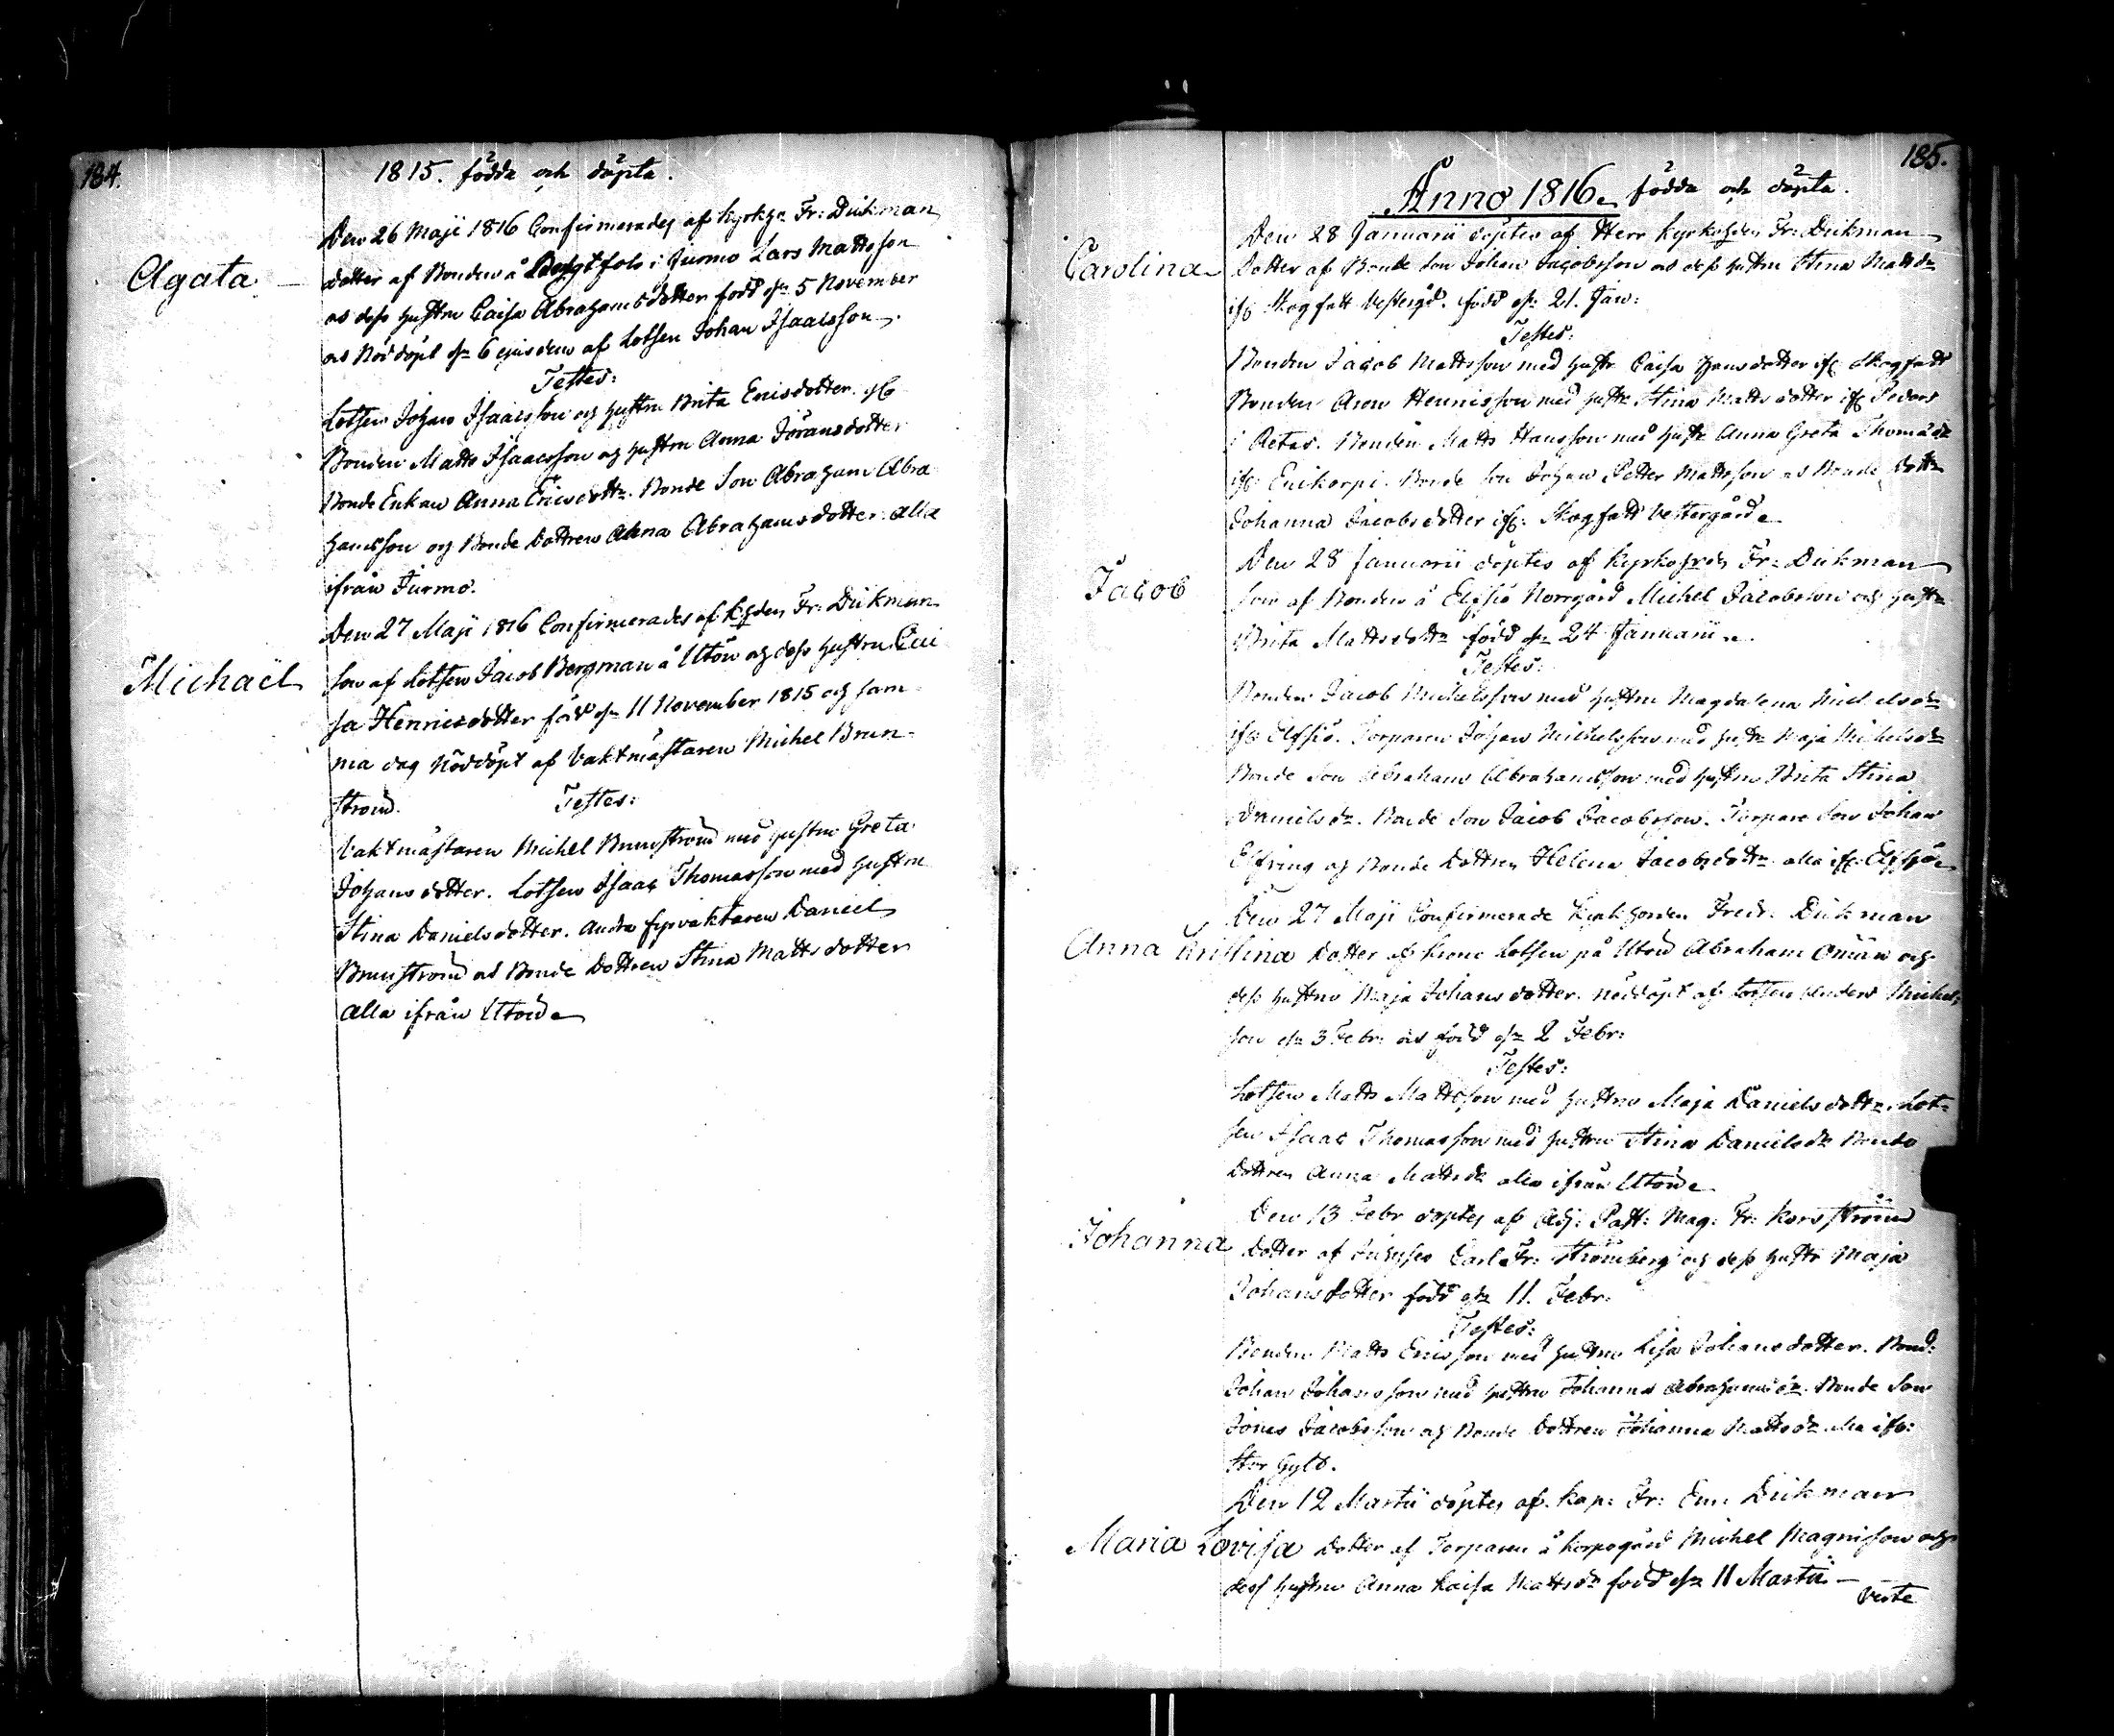 184.
1815. födda och döpta.
Den 26 Maji 1816 Confirmerades af Kyrkhn Fr: Dickman
Agata
dotter af Bonden å i Jurmo Lars Mattsson
os dess hustru Caisa Abrahamsdotter född dn 5 November
os Nöddöpt dn 6 ejusdem af Lotsen Johan Isaacsson.
Testes:
Lotsen Johan Isaacsson og hustru Brita Ericsdotter
Bonden Matts Isaacsson og hustru Anna Jöransdotter
Bonde Enkan Anna Ericsdottr. Bonde Son Abraham Abra
hamsson og Bonde Dottren Anna Abrahamsdotter alla
ifrån Jurmo.
Den 27 Maji 1816 Confirmerades af Khden Fr: Dickman
Michaël
son af Lotsen Jacob Bergman å Utön og dess hustru Cai
sa Henricsdotter född dn 11 November 1815 og sam
ma dag Nöddöpt af Vaktmästaren Michel Brun
ström.
Testes:
Vaktmästaren Michel Brunström med hustru Greta
Johansdotter. Lotsen Isaac Thomasson med hustru
Stina Danielsdotter. Andra fyrvaktaren Daniel
Brunström os Bonde Dottren Stina Mattsdotter
alla ifrån Utön
185.
Anno 1816. födda och döpta.
Den 28 Januarii döptes af Herr Kyrkohden Fr: Dickman
Carolina
Dotter af Bonde Son Johan Jacobsson os dess hustru Stina Mattsdr
ifr Skogfatt Vestergd. född dn 21. Jan:
Testes:
Bonden Jacob Mattsson med hustr Caisa Hansdotter ifr Skogfatt
Bonden Aron Hennisson med hustr Stina Mattsdotter ifr Peders
i Aetas. Bonden Matts Hansson med hustr Anna Greta Thomasdr
ifr Enikorpi. Bonde Son Johan Petter Mattsson os Bonde Dottr
Johanna Jacobsdotter ifr: Skogfatt Vestergård
Den 28 Januarii döptes af Kyrkohrdn Fr: Dickman
Jacob
son af Bonden å Elfsjö Norrgård Michel Jacobsson og hustr
Brita Mattsdottr född dn 24 Januarii
Testes:
Bonden Jacob Michelsson med hustru Magdalena Michelsdr
ifr Elfsjö. Torparen Johan Michelsson med hustr Maja Michelsdr
Bonde Son Abraham Abrahamsson med hustru Brita Stina
Danielsdr. Bonde Son Jacob Jacobsson. Torpare Son Johan
Elfving og Bonde Dottren Helena Jacobsdottr alla ifr: Elfsjö
Den 27 Maji Confirmerade Kyrkhorden Fredr: Dickman
Anna Kristina Dotter af Krono Lotsen på Utön Abraham Öman og
dess hustru Maja Johansdotter. nöddöpt af Lotsen Anders Michels
son dn 3 Febr: os född dn 2 Febr:
Testes:
Lotsen Matts Mattsson med hustru Maja Danielsdottr. Lot-
sen Isaac Thomasson med hustru Stina Danielsdr Bonde
Dottren Anna Mattsdr alla ifrån Utön
Den 13 Febr döptes af Adj: Past: Mag: Fr: Korsström
Johanna Dotter af Carl Fr: Strömberg og dess hustr Maja
Johansdotter född dn 11. Febr:
Testes:
Bonden Matts Ericsson med hustru Lisa Johansdotter. Bond:
Johan Johansson med hustru Johanna Abrahamsdr. Bonde Son
Jonas Jacobsson og Bonde Dottren Johanna Mattsdr alla ifr:
Stor Gylt.
Den 12 Martii döptes af Kap: Fr: Em: Dickman
Maria Lovisa Dotter af Torparen å Korpogård Michel Magnisson og
dess hustru Anna Caisa Mattsdr född dn 11 Martii
Verte